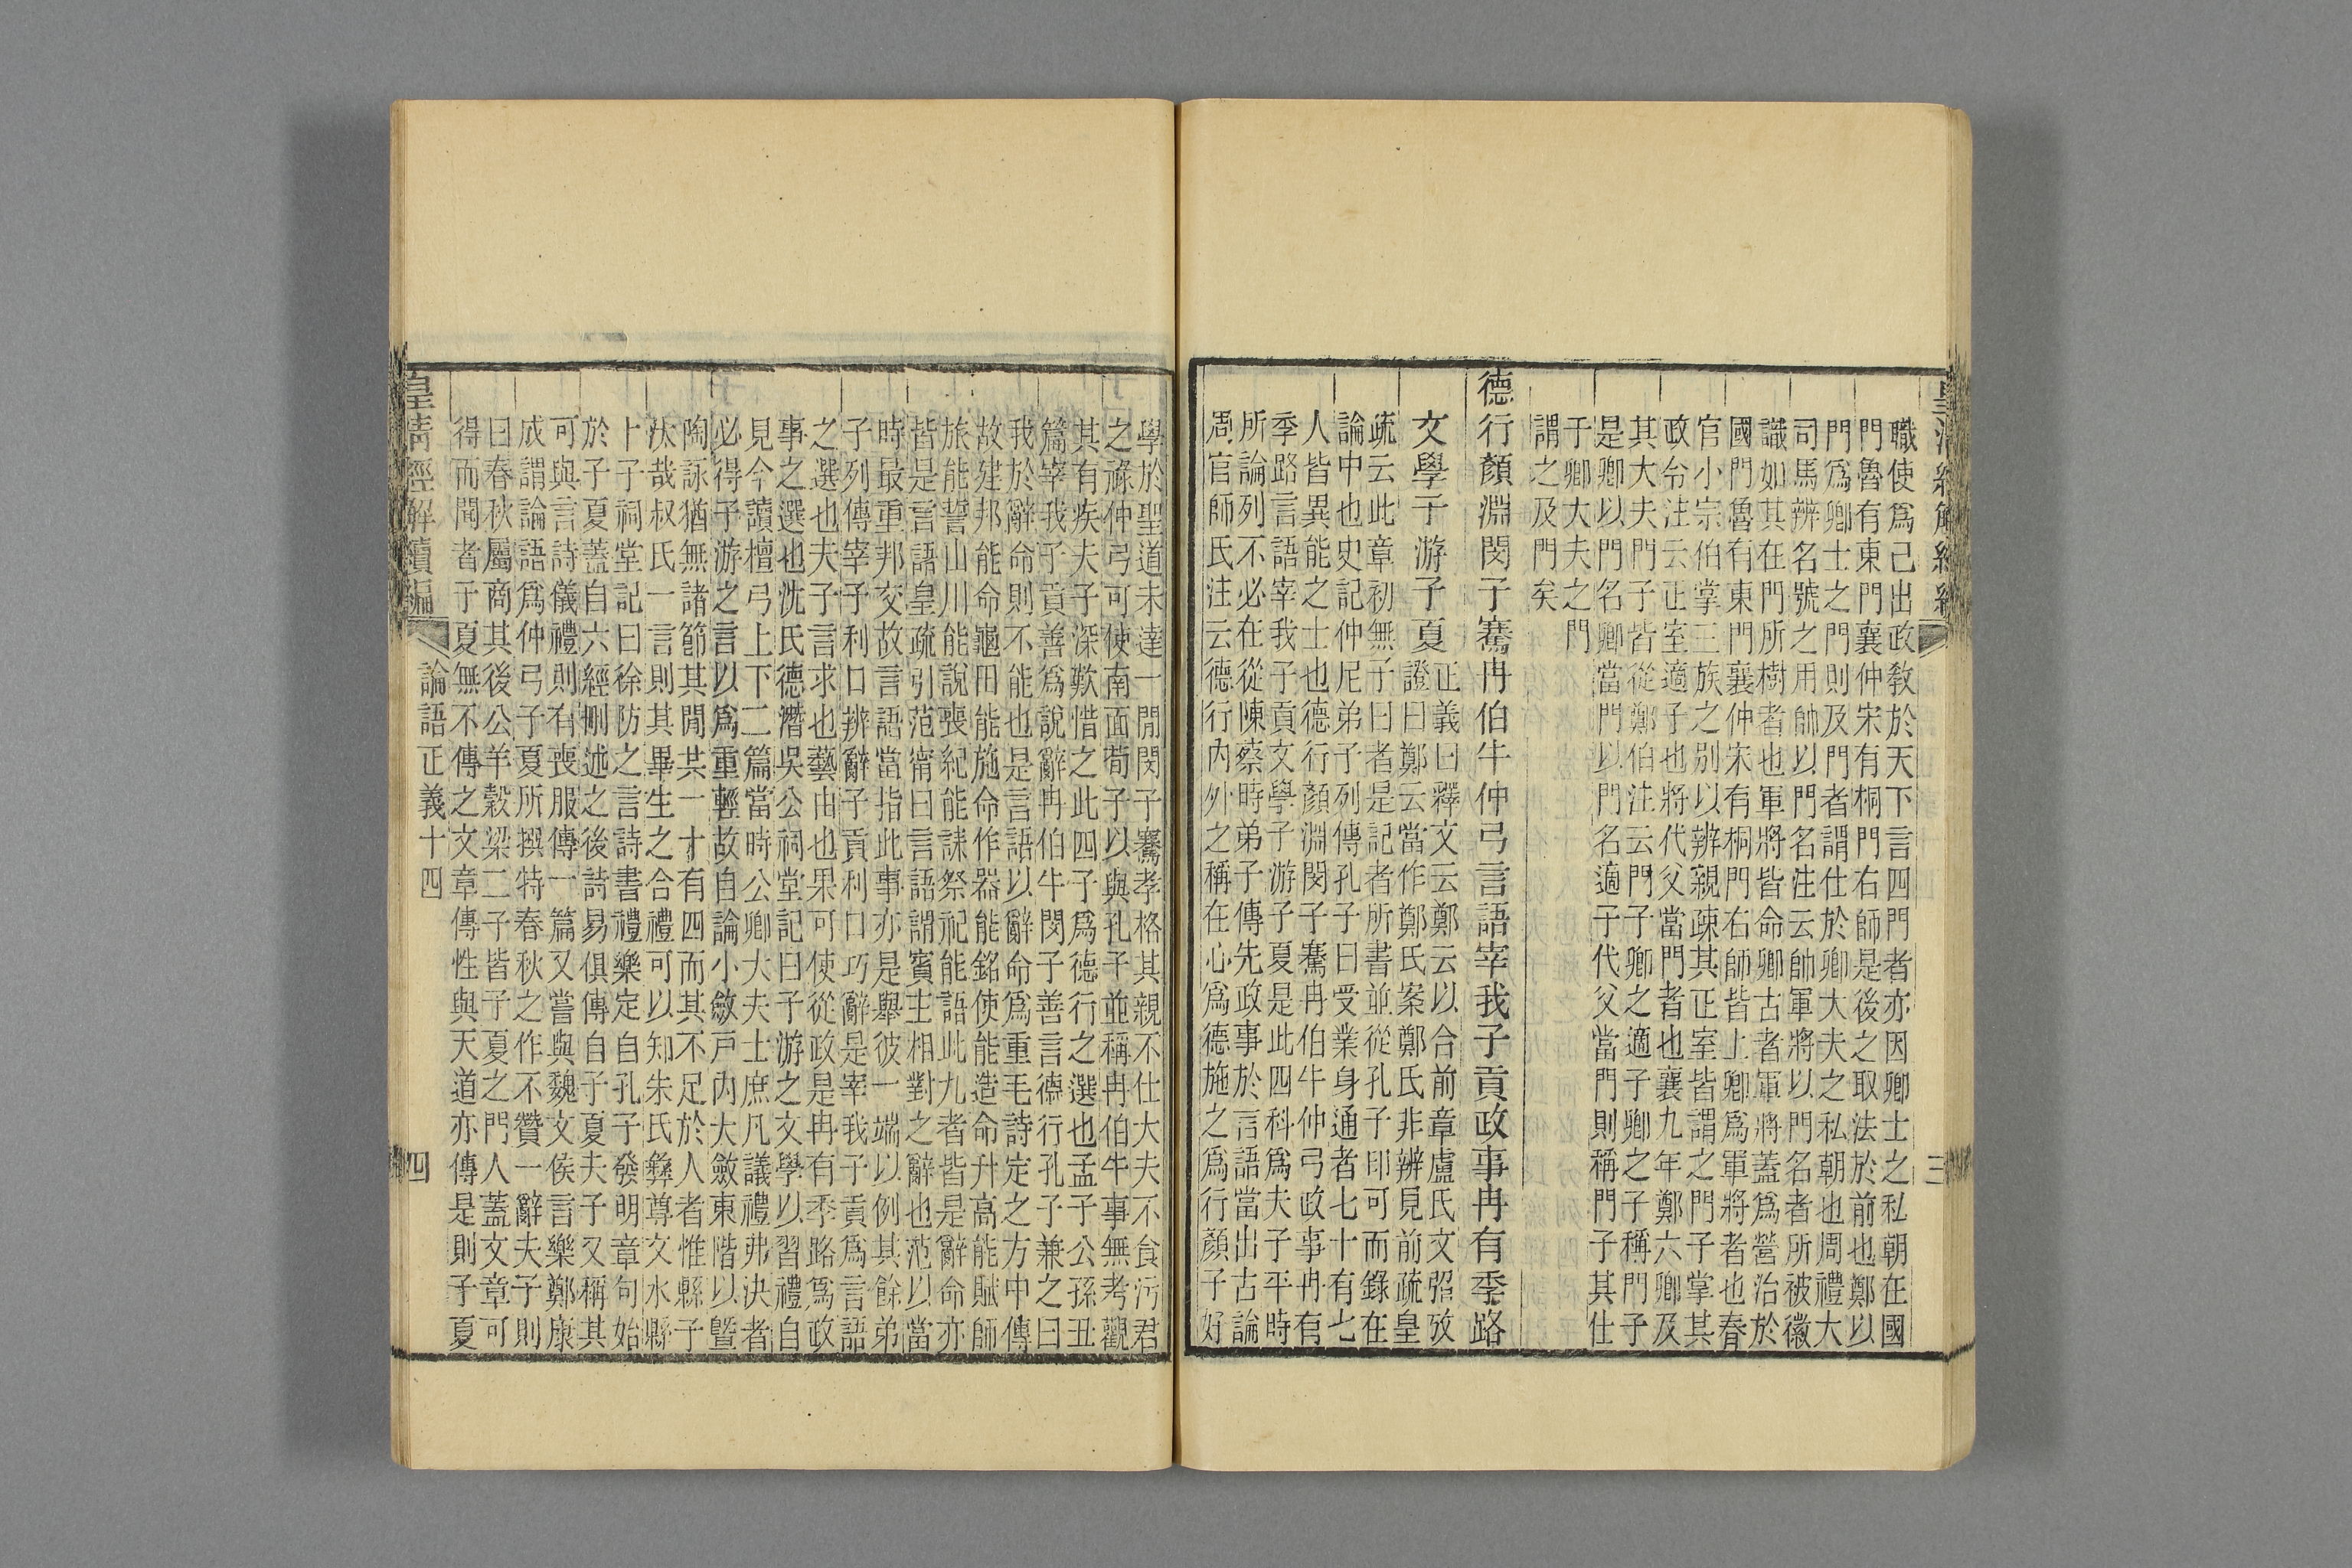 職使爲己出政敎於天下言四門者亦因卿士之私朝在國
門魯有東門襄仲宋有桐門右師是後之取法於前也鄭以
門爲卿士之門則及門者謂仕於卿大夫之私朝也周禮大
司馬辨名號之用帥以門名注云帥軍將以門名者所被徽
識如其在門所樹者也軍將皆命卿古者軍將蓋爲營治於
國門魯有東門襄仲宋有桐門右師皆上卿爲軍將者也春
官小宗伯掌三族之別以辨親疎其正室皆謂之門子掌其
政令注云正室適子也將代父當門者也襄九年鄭六卿及
其大夫門子皆從鄭伯注云門子卿之適子卿之子稱門子
是卿以門名卿當門以門名適子代父當門則稱門子其仕
于卿大夫之門
謂之及門矣
德行顏淵閔子騫冉伯牛仲弓言語宰我子貢政事冉有季路
文學子游子夏
正義曰釋文云鄭云以合前章盧氏文弨攷
證曰鄭云當作鄭氏案鄭氏非辨見前疏皇
疏云此章初無子曰者是記者所書並從孔子印可而錄在
論中也史記仲尼弟子列傳孔子曰受業身通者七十有七
人皆異能之士也德行顏淵閔子騫冉伯牛仲弓政事冉有
季路言語宰我子貢文學子游子夏是此四科爲夫子平時
所論列不必在從陳蔡時弟子傳先政事於言語當出古論
周官師氏注云德行內外之稱在心爲德施之爲行顏子好
三
學於聖道未達一閒閔子騫孝格其親不仕大夫不食污君
之祿仲弓可使南面荀子以與孔子並稱冉伯牛事無考觀
其有疾夫子深歎惜之此四子爲德行之選也孟子公孫丑
篇宰我子貢善爲說辭冉伯牛閔子善言德行孔子兼之曰
我於辭命則不能也是言語以辭命爲重毛詩定之方中傳
故建邦能命龜田能施命作器能銘使能造命升高能賦師
旅能誓山川能說喪紀能誄祭祀能語此九者皆是辭命亦
皆是言語皇疏引范甯曰言語謂賓主相對之辭也范以當
時最重邦交故言語當指此事亦是舉彼一端以例其餘弟
子列傳宰予利口辨辭子貢利口巧辭是宰我子貢爲言語
之選也夫子言求也藝由也果可使從政是冉有季路爲政
事之選也沈氏德潛吳公祠堂記曰子游之文學以習禮自
見今讀檀弓上下二篇當時公卿大夫士庶凡議禮弗決者
必得子游之言以爲重輕故自論小斂戸內大斂東階以曁
陶詠猶無諸節其閒共一十有四而其不足於人者惟縣子
汰哉叔氏一言則其畢生之合禮可以知朱氏彝尊文水縣
卜子祠堂記曰徐防之言詩書禮樂定自孔子發明章句始
於子夏蓋自六經刪述之後詩易俱傳自子夏夫子又稱其
可與言詩儀禮則有喪服傳一篇又嘗與魏文侯言樂鄭康
成謂論語爲仲弓子夏所撰特春秋之作不贊一辭夫子則
曰春秋屬商其後公羊穀梁二子皆子夏之門人蓋文章可
得而聞者子夏無不傳之文章傳性與天道亦傳是則子夏
皇淸經解續編
論語正義十四
四